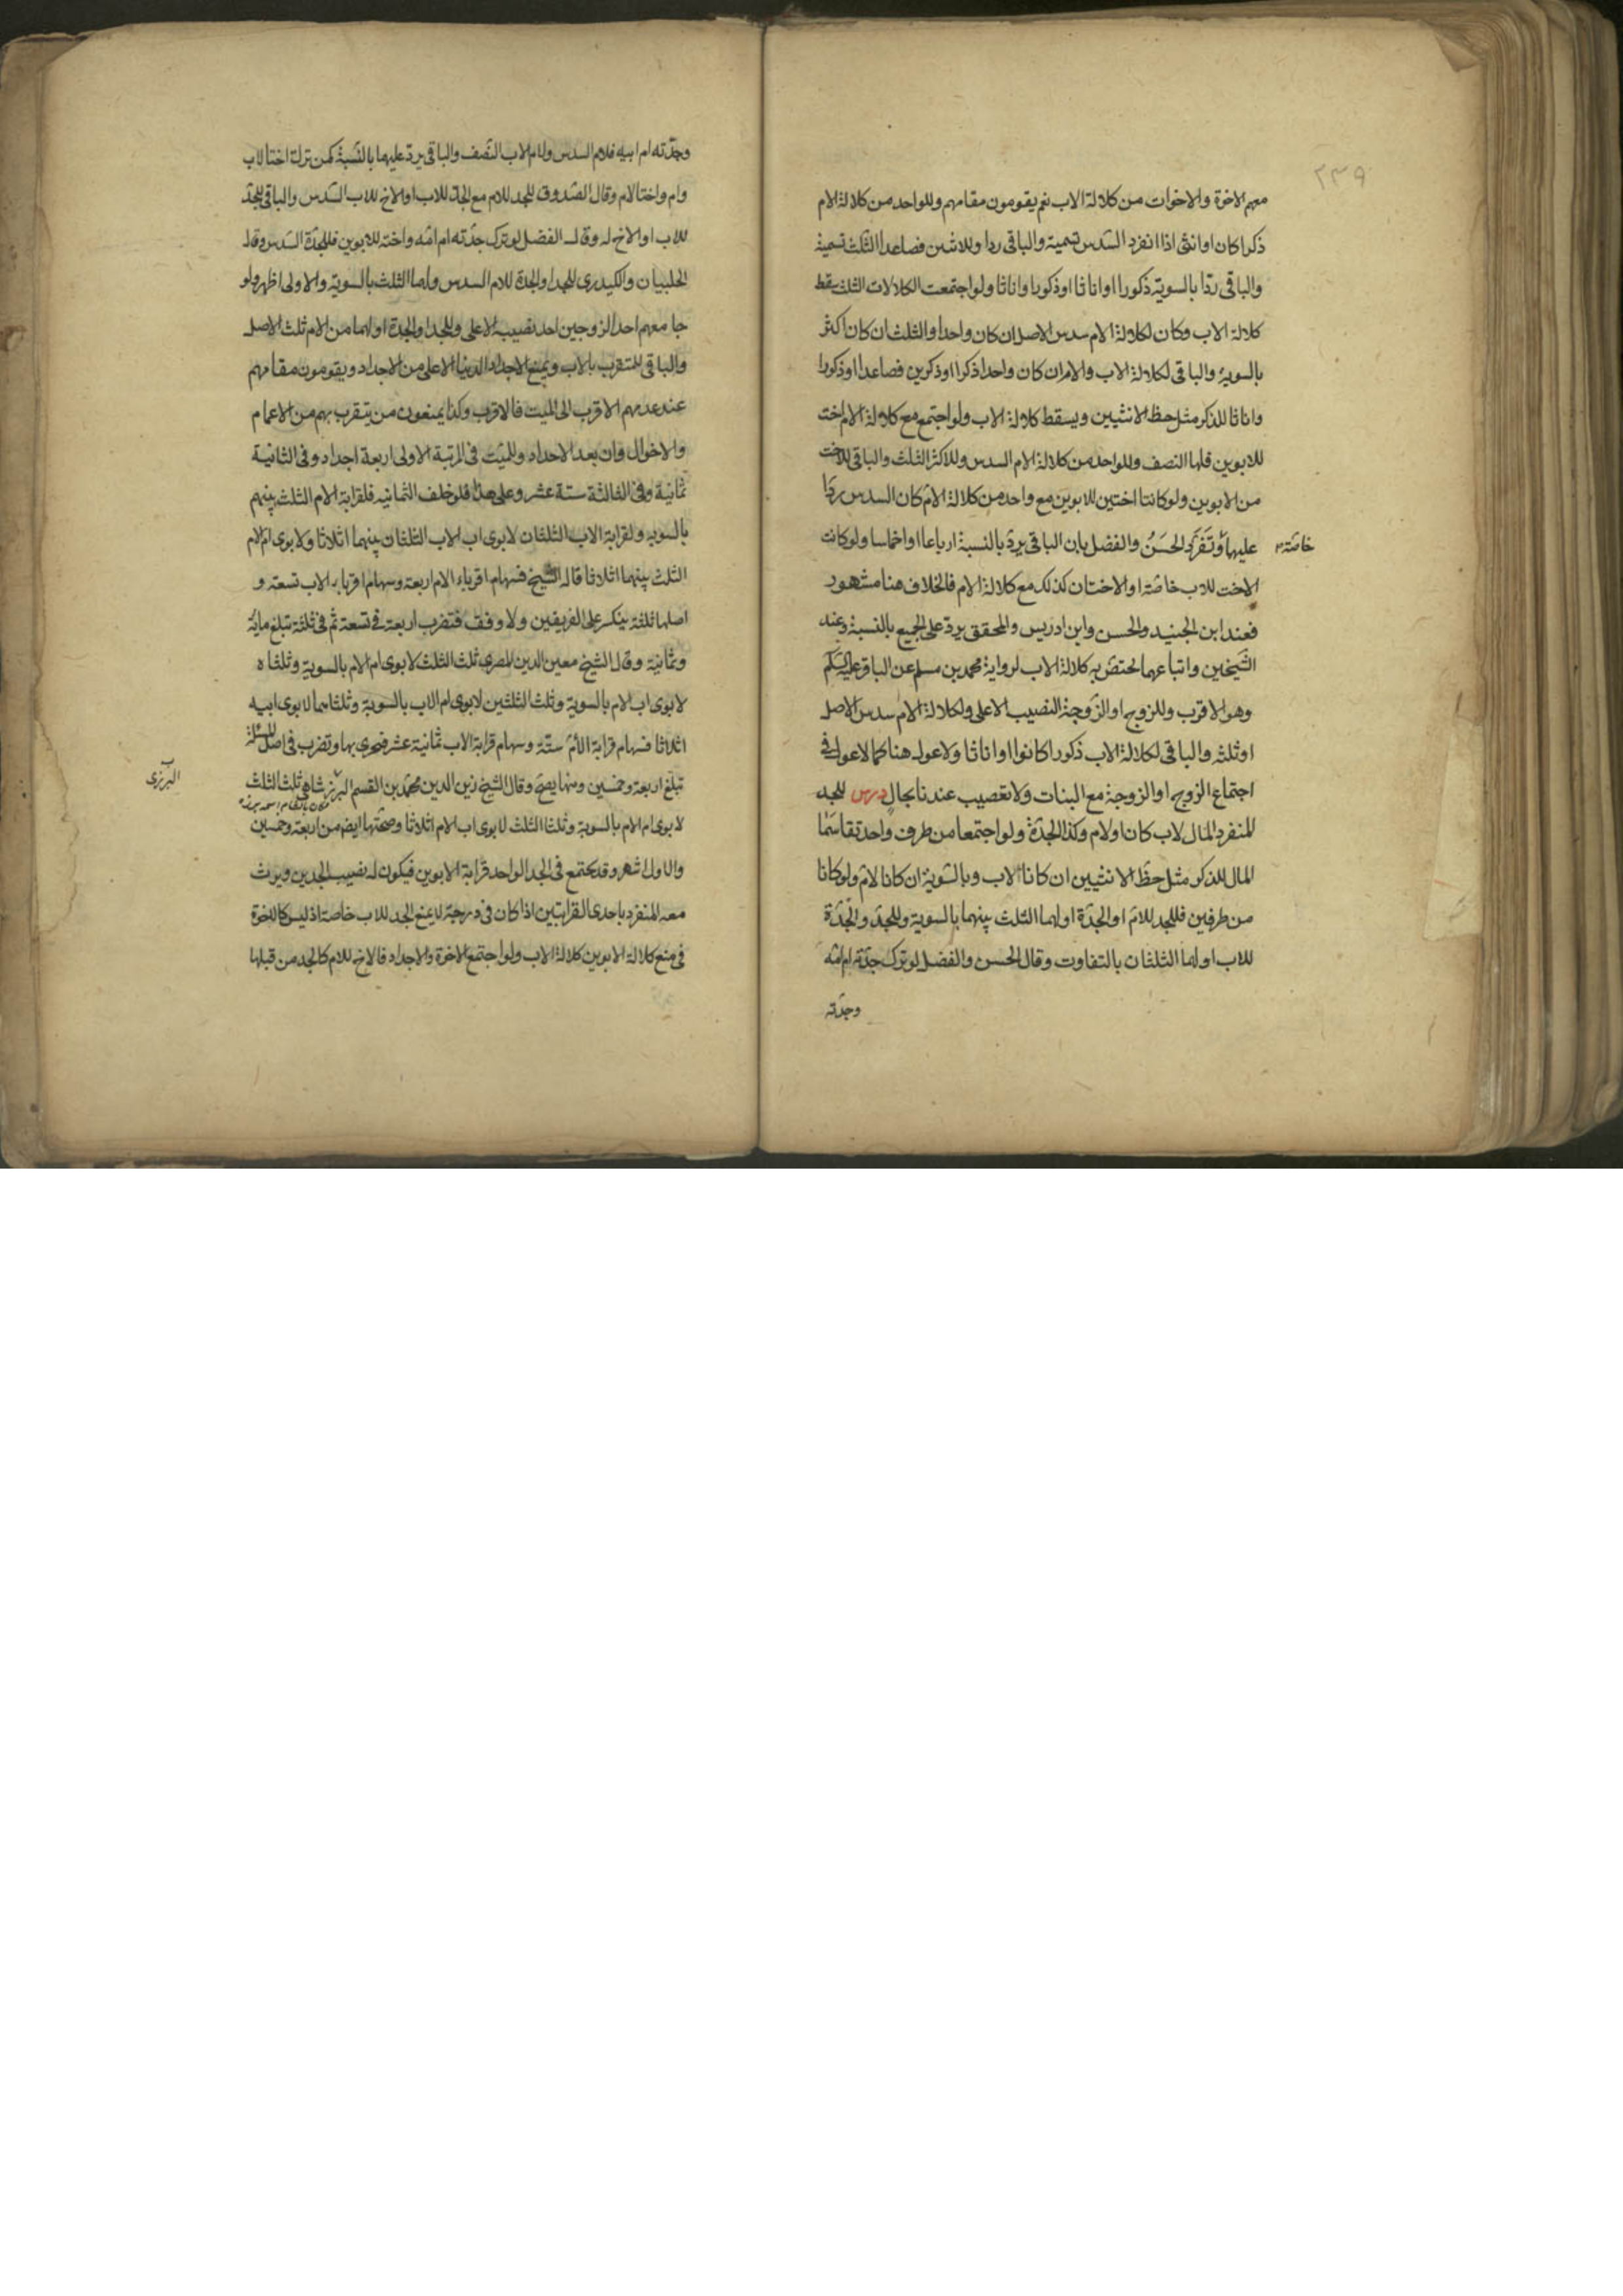 ٢٣٩
معهم الاخوة والاخوات من كلالة الاب نعم يقومون مقامهم وللواحد من كلالة الام
ذكرا كان او انثى اذا انفرد السّدس تسمية والباقى ردا وللاثنين فصاعدا الثلث تسمية
والباقى ردّا بالسوية ذكورا او اناثا او ذكورا واناثا ولو اجتمعت الكلالات الثلث سقط
كلالة الاب وكان لكلالة الام سدس الاصل ان كان واحدا والثلث ان كان اكثر
بالسوية والباقى لكلالة الاب والام ان كان واحدا ذكرا او ذكرين فصاعدا او ذكورا
واناثا للذكر مثل حظ الانثيين ويسقط كلالة الاب ولو اجتمع مع كلالة الام اخت
للابوين فلها النصف وللواحد من كلالة الام السدس وللاكثر الثلث والباقى للاخت
من الابوين ولو كانتا اختين للابوين مع واحد من كلالة الامّ كان السدس ردّا
عليهما وتَفَرّد الحَسَنُ والفضل بان الباقى يردّ بالنسبة ارباعا او اخماسا ولو كانت
خاصّة
الاخت للاب خاصّة او الاختان كذلك مع كلالة الام فالخلاف هنا مشهور
فعند ابن الجنيد والحسن وابن ادريس والمحقق يردّ على الجميع بالنسبة وعند
الشّيخين واتباعهما تختصّ به كلالة الاب لرواية محمد بن مسلم عن الباقر عليه السّلم
وهو الاقرب وللزوج او الزّوجة النصيب الاعلى ولكلالة الام سدس الاصل
او ثلثه والباقى لكلالة الاب ذكورا كانوا او اناثا ولا عول هنا كما لا عول فى
اجتماع الزوج او الزوجة مع البنات ولا تعصيب عندنا بحال درس للجد
المنفرد المال لاب كان او لام وكذا الجدّة ولو اجتمعا من طرف واحد تقاسَما
المال للذكر مثل حظّ الانثيين ان كانا لاب وبالسّوية ان كانا لامّ ولو كانا
من طرفين فللجد للامّ او الجدّة او لهما الثلث بينهما بالسوية وللجدّ والجدّة
للاب او لهما الثلثان بالتفاوت وقال الحسن والفضل لو ترك جدّته ام امّه
وجدّته
وجدّته ام ابيه فلام الام السدس ولام الاب النّصف والباقى يردّ عليهما بالنّسبة كمن ترك اختا لاب
وام واختا لام وقال الصّدوق للجد للام مع الجدّ للاب او الاخ للاب السّدس والباقى للجدّ
للاب او الاخ له وقال الفضل لو ترك جدّته ام امّه واخته للابوين فللجدّة السّدس وقال
الحلبيان والكيدرى للجد او الجدة للام السدس ولهما الثلث بالسويّة والاولى اظهر ولو
جا معهم احد الزوجين اخذ نصيبه الاعلى وللجد او الجدة او لهما من الام ثلث الاصل
والباقى للمتقرب بالاب ويمنع الاجداد الدنيا الاعلى من الاجداد ويقومون مقامهم
عند عدمهم الاقرب الى الميت فالاقرب وكذا يمنعون من يتقرب بهم من الاعمام
والاخوال وان بعد الاجداد وللميّت فى المرتبة الاولى اربعة اجداد وفى الثانية
ثمانية وفى الثالثة ستة عشر وعلى هذا فلو خلف الثمانية فلقرابة الام الثلث بينهم
بالسوية ولقرابة الاب الثلثان لابوى اب الاب الثلثان بينهما اثلاثا ولابوى ام الام
الثلث بينهما اثلاثا قاله الشّيخ فسهام اقرباء الام اربعة وسهام اقرباء الاب تسعة و
اصلها ثلثة ينكسر على الفريقين ولا وفق فتضرب اربعة فى تسعة ثم فى ثلثة تبلغ مائة
وثمانية وقال الشيخ معين الدين المصرى ثلث الثلث لابوى ام الام بالسوية وثلثاه
لابوى اب الام بالسوية وثلث الثلثين لابوى ام الاب بالسوية وثلثاهما لابوى ابيه
اثلاثا فسهام قرابة الامّ ستّة وسهام قرابة الاب ثمانية عشر فيجرى بها وتضرب فى اصل المسئلة
تبلغ اربعة وخمسين ومنها يصحّ وقال الشيخ زين الدين محمّد بن القسم البرزشاهى ثلث الثلث
البرزى
لابوى ام الام بالسوية وثلثا الثلث لابوى اب الام اثلاثا وصحّتها ايضا من اربعة وخمسين
والاول اشهر وقد يجتمع فى الجد الواحد قرابة الابوين فيكون له نصيب الجدين ويرث
معه المنفرد باحدى القرابتين اذا كان فى درجته لا يمنع الجد للاب خاصة اذ ليس كالاخوة
فى منع كلالة الابوين كلالة الاب ولو اجتمع الاخوة والاجداد فالاخ للام كالجد من قبلها